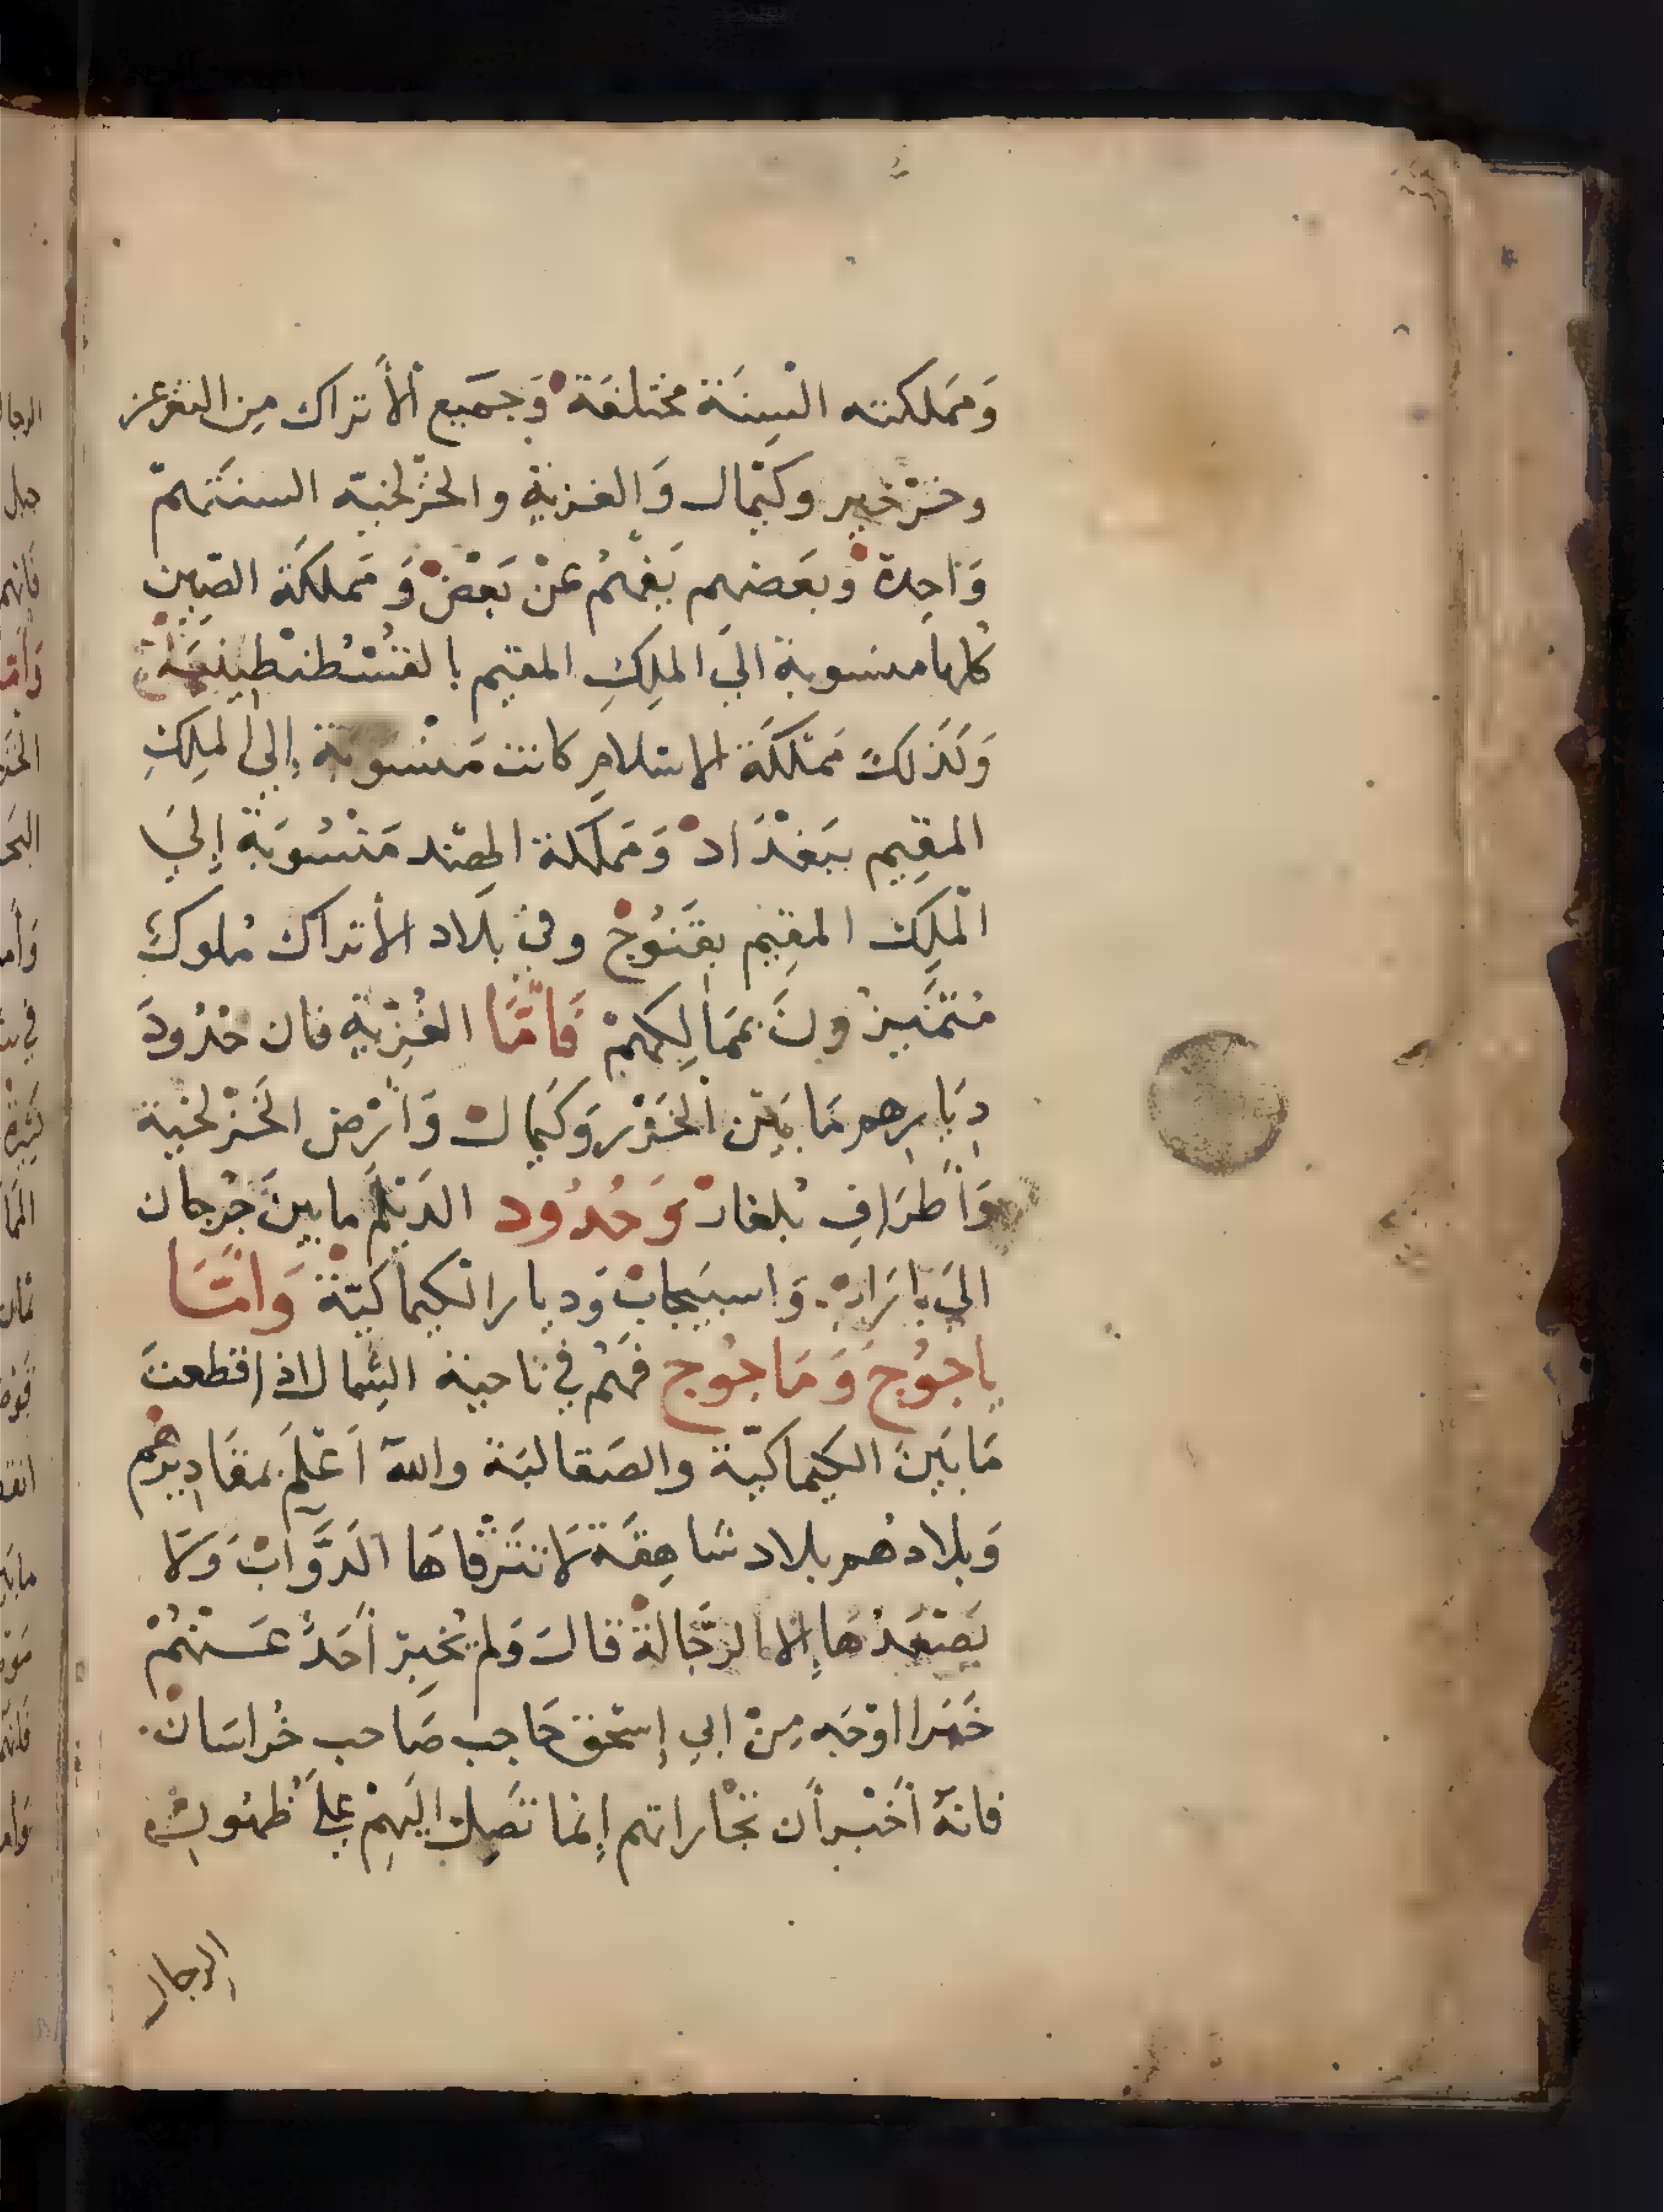 وَمَملكته السِنَة مختلفَة وَجَميع الأتراك مِن التغرغز
وخرْخير وكيْمال وَالغزيةِ والخزلخية السنتهمْ
وَاحِدة وبعَضهم يَفهمُ عَنْ بَعْض وَمَملكَة الصّين
كلها منسوبة الي الملِكِ المقيم بالقُسْطنْطِينيَة
وَكذلكَ مَمْلكَة الاسلامِ كانت مَنْسوبة إلي الملِكِ
المقِيم ببَغْدَاد وَمَملكة الهند مَنْسُوبَة إلي
الملِك المقِيم بقَنُوج وفي بلَاد الأتراك مُلوكٌ
مُتمَيزُونَ بمَمَالِكهِمْ فَامَّا الغُزّيةِ فان حُدُودَ
دِيَارِهم مَا بَيْن الخَزْر وَكيماك وَأرْض الخَزْلخية
وَأطرَافِ بُلغار وَحُدُود الدَيْلَم ما بينَ جُرجان
الي باراب وَاسبيجابْ وَديار الكيماكيّة وَامَّا
ياجُوجَ وَمَاجُوج فهُم في ناحية الشِمال اذا قطعتَ
مَا بَينَ الكيماكيّة والصَقالبَة والله اَعْلَم بمقَادِيرهُم
وَبلادهُم بلاد شاهِقَة لا تترقاهَا الدَّوَابْ وَلَا
يَصْعَدُهَا إلا الرجَّالة قالَ وَلم يُخبِر أحَدٌ عَنْهُمْ
خَبَرا اوْجَه مِنْ ابي إسْحٰق حَاجب صَاحب خُراسَانْ
فانهُ أخْبر أن تجَاراتهم إنما تَصِل اليَهِمْ عَلَي ظهُورِ
الرجال